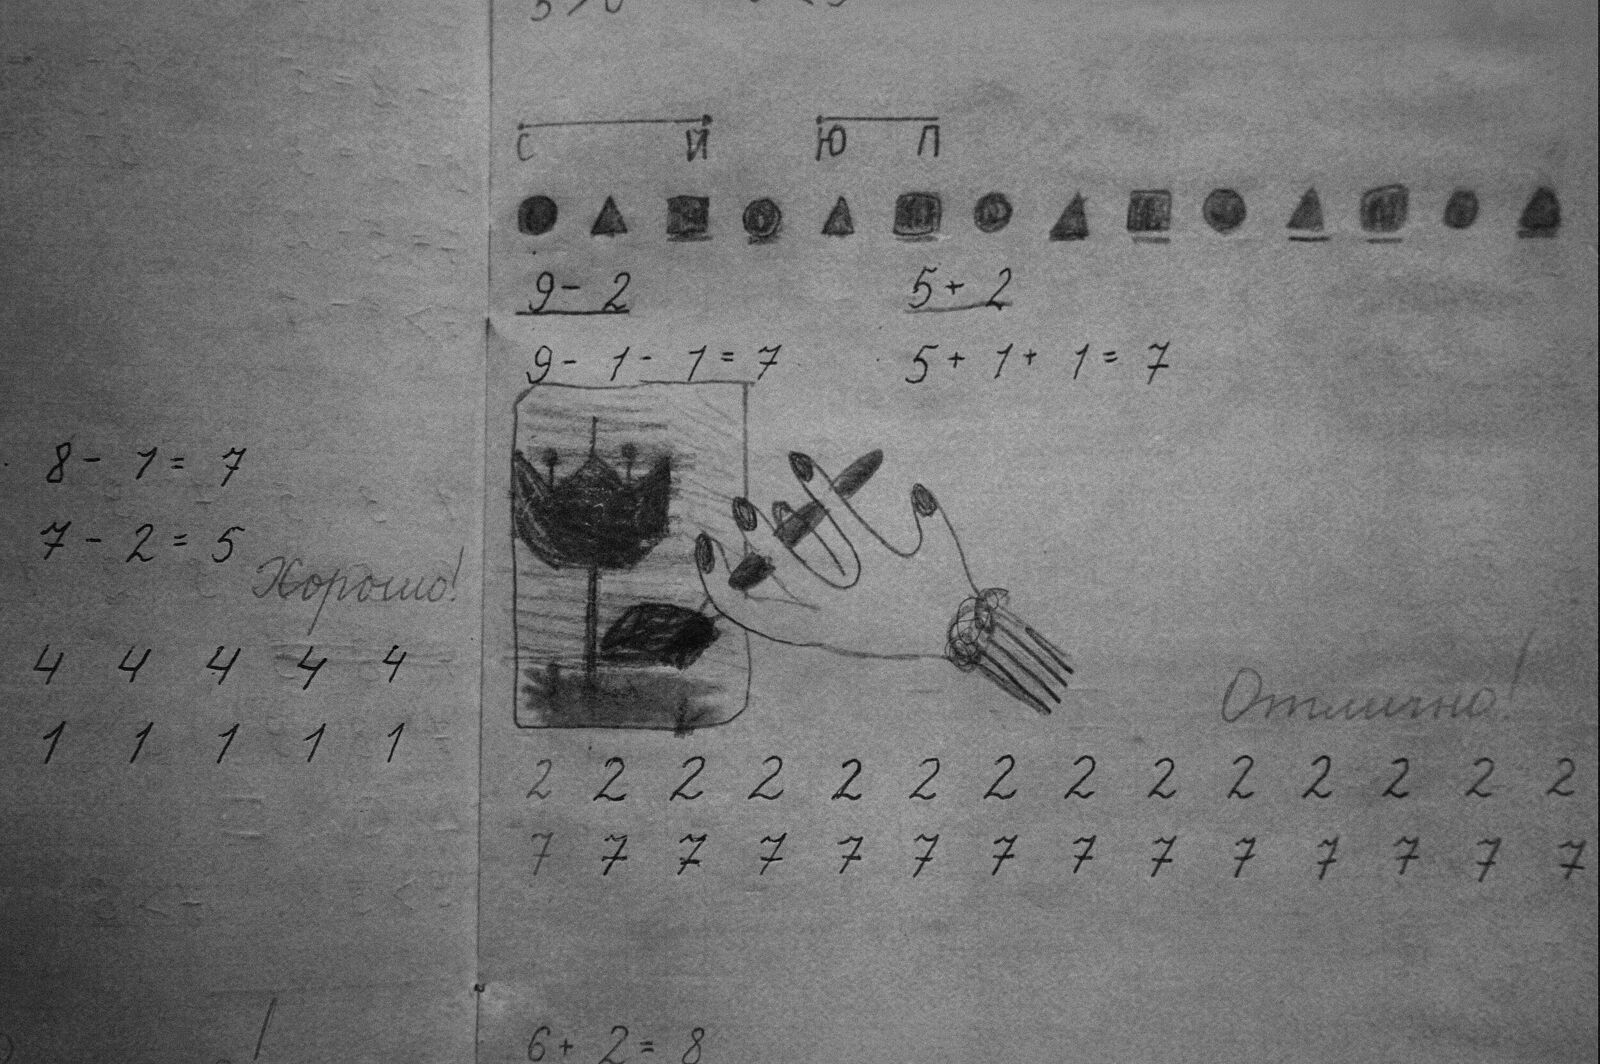 8 - 1 = 7
7 - 2 = 5
Хорошо!
4 4 4 4 4
1 1 1 1 1
С Й Ю Л
9 - 2 5 + 2
9 - 1 - 1 = 7 5 + 1 + 1 = 7
Отлично!
2 2 2 2 2 2 2 2 2 2 2 2 2 2
7 7 7 7 7 7 7 7 7 7 7 7 7 7
6 + 2 = 8